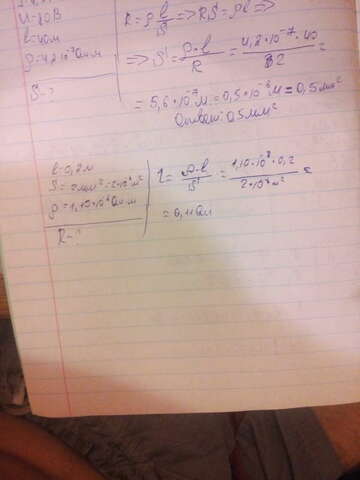 U=80В
R = ρ l/S => RS = ρl =>
l=40м
=> S = ρ·l/R = 4,2·10⁻⁷·40/32 =
S-?
= 5,6*10⁻⁷м=0,5*10⁻⁶м=0,5мм²
Ответ: 0,5мм²
l=0,2м
S=2мм²=2*10⁻⁶м²
ρ=1,10*10⁻⁶Ом м
R-?
= ρ·l/S = 1,10·10⁻⁶·0,2/2*10⁻⁶м² =
=0,11Ом